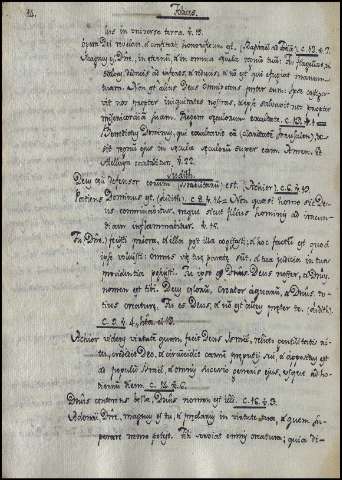 Tobias.
ius in universa terra. ℣. 13.
opera Dei revelare, & confiteri honorificum est. (Raphael ad Tobiam) c. 12. ℣. 7.
Magnus es Dne, in æternum, & in omnia sæcula regnum tuum: Tu flagellas, &
salvas; deducis ad inferos, & reducis, & non est qui effugiat manum
tuam. Non est alius Deus omnipotens præter eum: Ipse castiga-
vit nos propter iniquitates nostras, & ipse salvavit nos propter
misericordiam suam. Regem sæculorum exaltate. c. 13. ℣. 1
Benedictus Dominus, qui exaltavit eam (Jerusalem), &
sit regnum ejus in sæcula sæculorum super eam. Amen. &
Alleluja cantabitur. ℣. 22.
Judith.
Deus cæli defensor eorum (Israelitarum) est. (Achior) c. 6.
Patiens Dominus est, (Judith) c. 8. ℣. 14. Non quasi homo sic De-
us comminabitur, neque sicut filius hominis ad iracun-
diam inflammabitur. ℣. 15.
Tu Dne fecisti priora, & illa post illa cogitasti; & hoc factum est quod
ipse voluisti: omnes viæ tuæ paratæ sunt, & tua judicia in tua
providentia posuisti. Tu Dnus Deus noster, & Dnus
nomen est tibi. Deus cælorum, Creator aquarum, & Dnus to-
tius creaturæ. Tu es Deus, & non est alius præter te. (Judith.)
c. 9. ℣. 4.
Achior videns virtutem quam fecit Deus Israel, relicto gentilitatis ri-
tu, credidit Deo, & circumcidit carnem præputii sui, & appositus est
ad populum Israel, & omnis successio generis ejus, usque ad ho-
diernum diem. c. 14. ℣. 6.
Dnus conterens bella, Dnus nomen est illi. c. 16. ℣. 3.
Adonai Dne, magnus es tu, & præclarus in virtute tua, & quem su-
perare nemo potest. Tibi serviat omnis creatura; quia di-